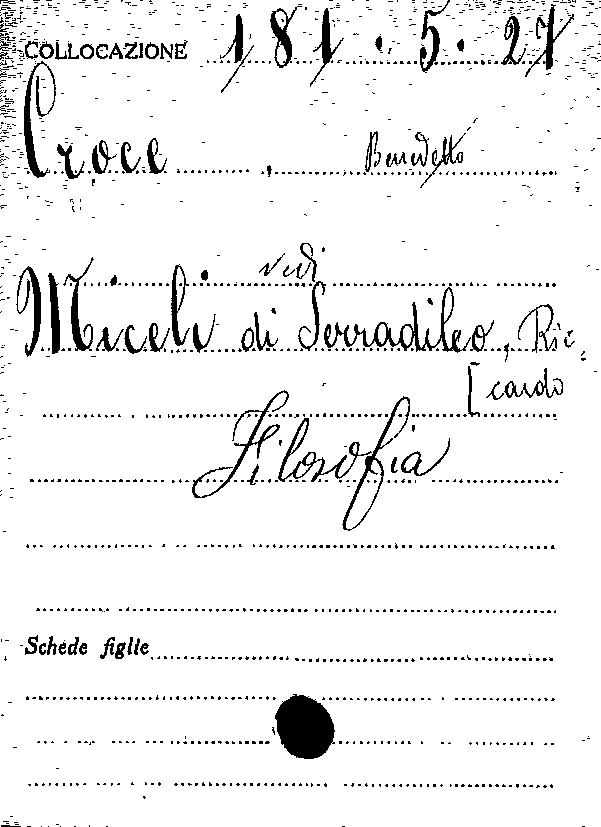 COLLOCAZIONE 181.5.27
Croce, Benedetto
vedi
Miceli di Serradileo, Ric-
[cardo
Filosofia
Schede figlie